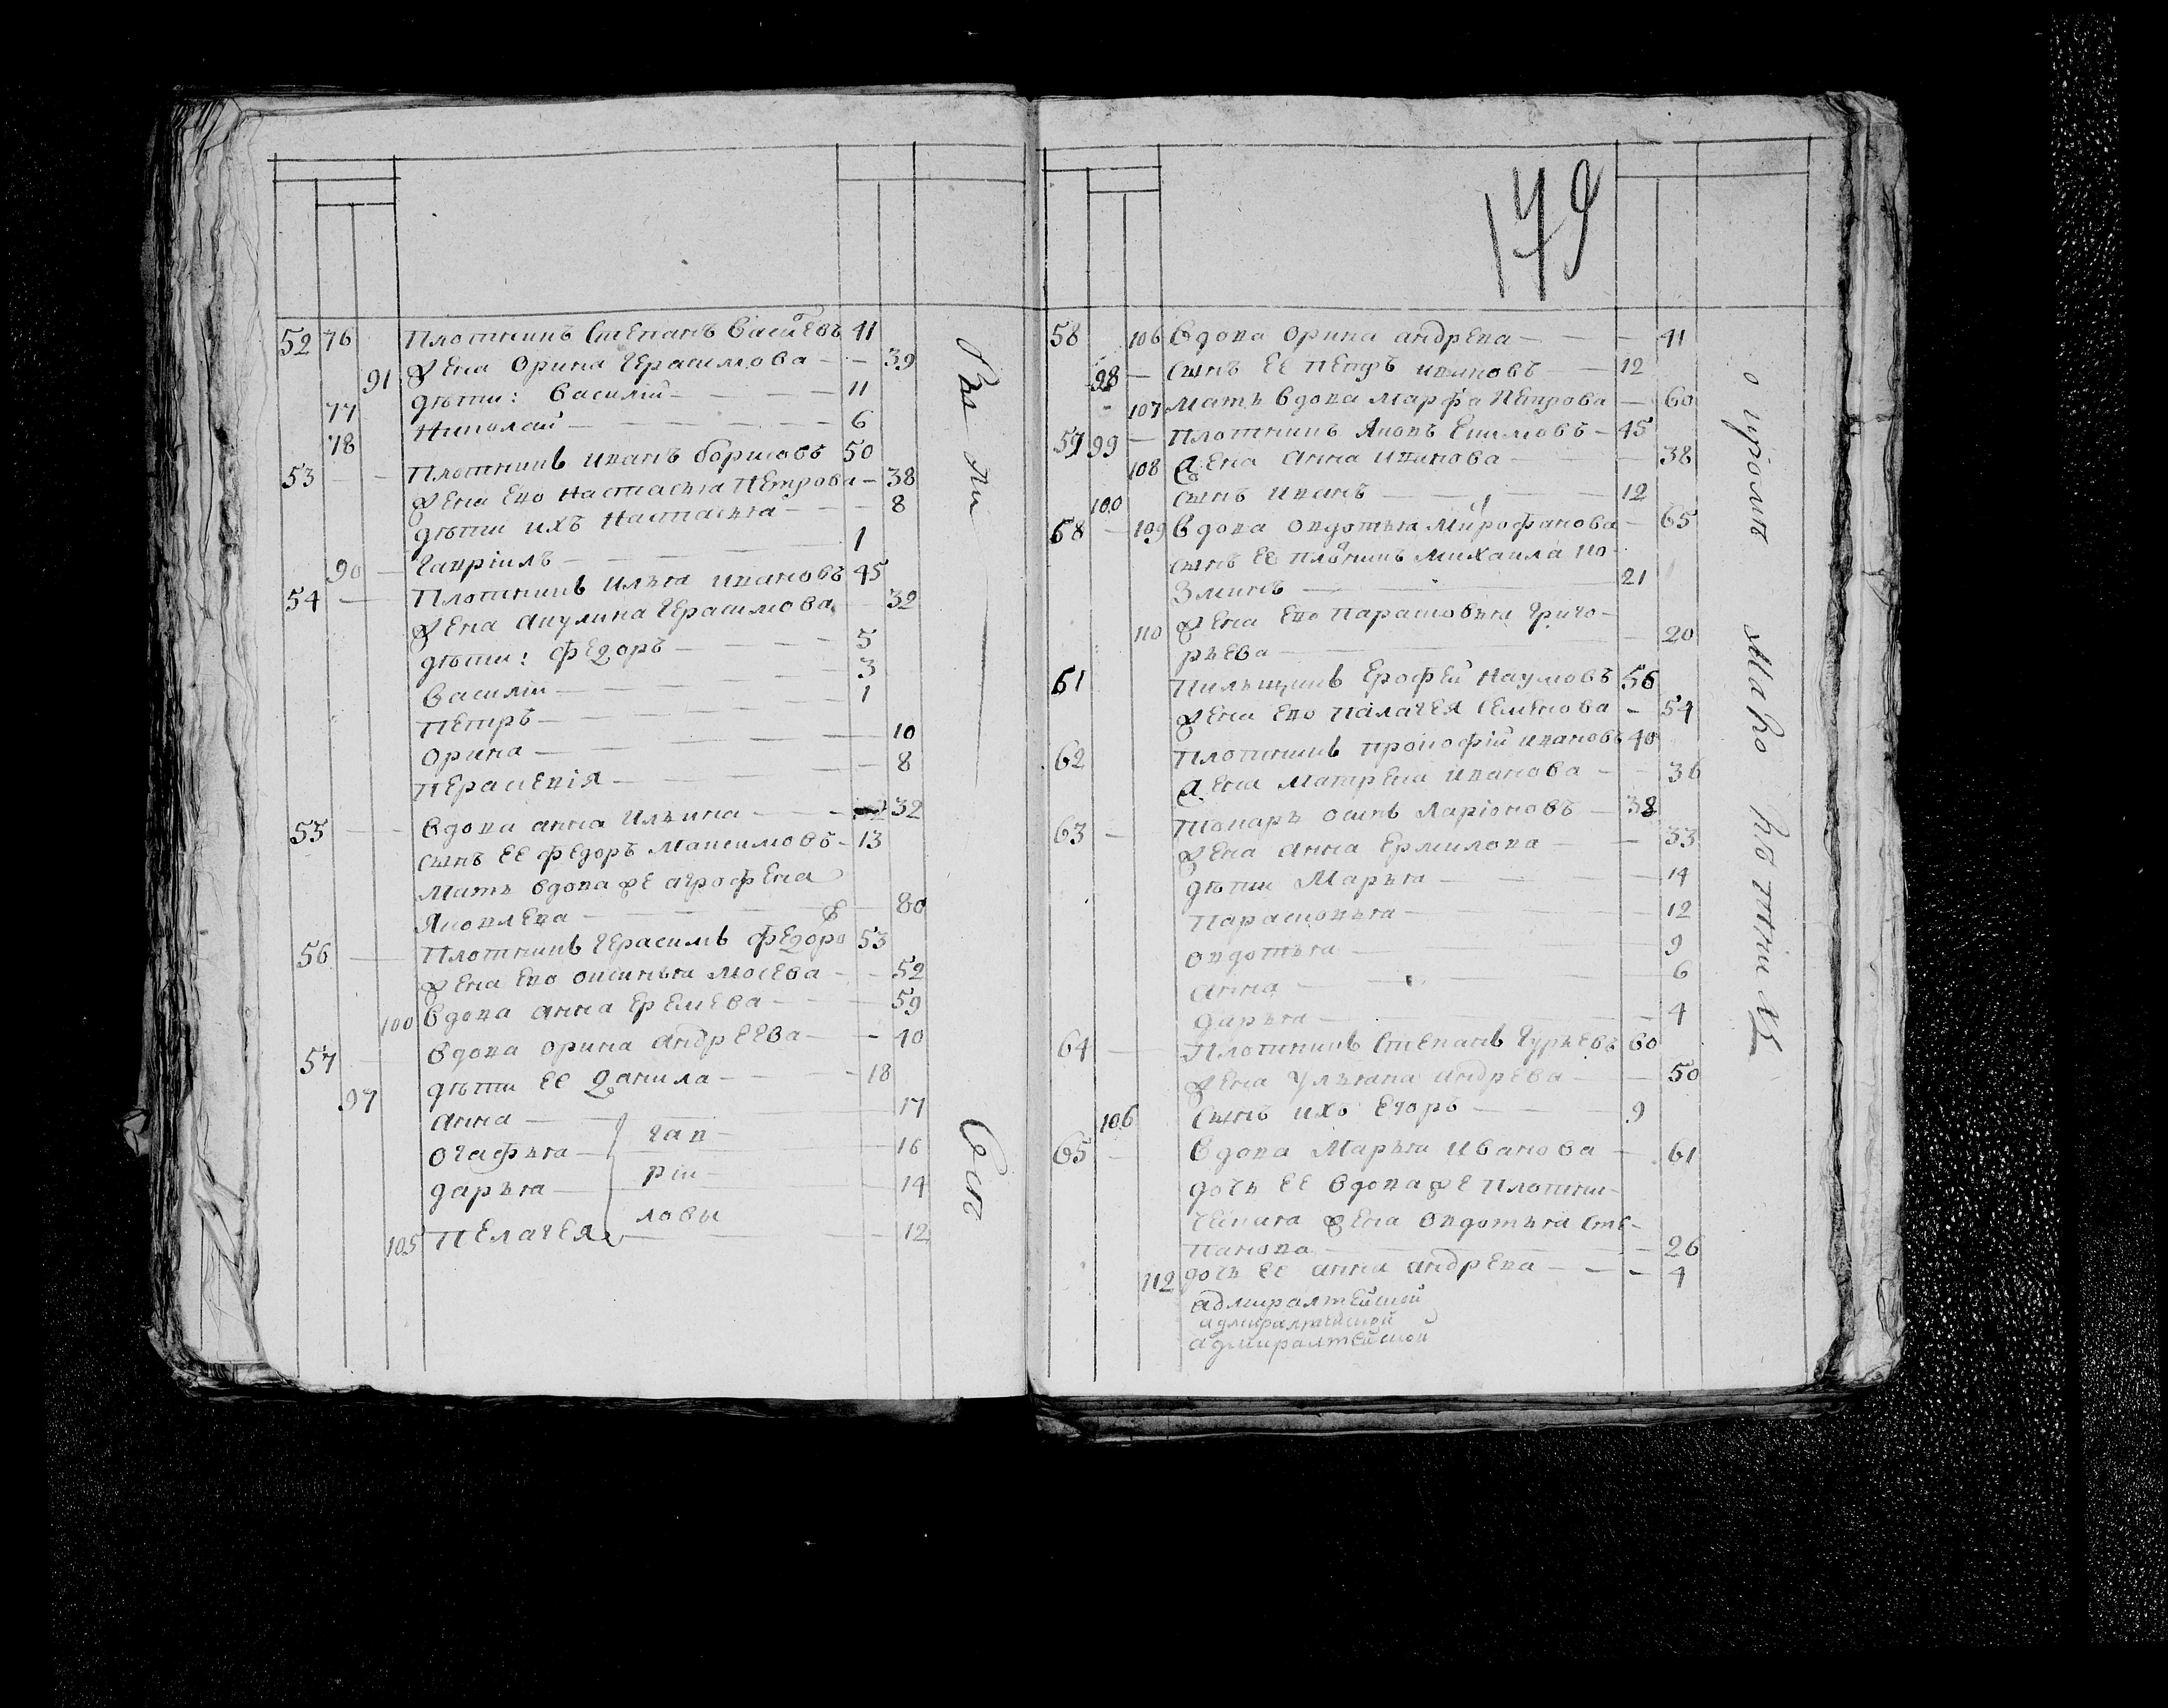 52 76 Плотникъ Степанъ Василевъ 41
Жена Орина Герасимова 39
91 Дѣти: Василій 11
77 Николай 6
78
53 Плотникъ Иванъ Борисовъ 50
Жена ево Настасья Петрова 38
Дѣти ихъ Настасья 8
Гавріилъ 1
90
54 Плотникъ Илья Ивановъ 45
Жена Акулина Герасимова 32
Дѣти: Федоръ 5
Василіи 3
Петръ 1
Орина 10
Перасковія 8
55 Вдова Анна Ильина 32
Сынъ ее Федоръ Максимовъ 13
Мать вдова же Агрофена
Яковлева 80
56 Плотникъ Герасимъ Федоро 53
Жена ево Оксинья Мосева 52
100 Вдова Анна Еремева 59
57 Вдова Орина Андреева 40
97 Дѣти ее Данила 18
Анна 17
Огафья Гав 16
Дарья ріи 14
ловы
105 Пелагея 12
Вы ли
Сосл
179
58 106 Вдова Орина Андрева 41
98 Сынъ ее Петръ Ивановъ 12
107 Мать вдова Марфа Петрова 60
59 99 Плотникъ Яковъ Екимовъ 45
108 Жена Анна Иванова 38
100 Сынъ Иванъ 12
58 109 Вдова Овдотья Митрофанова 65
Сынъ ее плотникъ Михаила Ко
зминъ 21
110 Жена ево Парасковья Григо
рьева 20
61 Пильщикъ Ерофей Наумовъ 56
Жена ево Палагея Семенова 54
62 Плотникъ Прокофій Ивановъ 40
Жена Матрена Иванова 36
63 Токарь Осипъ Ларіоновъ 38
Жена Анна Ермилова 33
Дѣти Марья 14
Парасковья 12
Овдотья 9
Анна 6
Дарья 4
64 Плотникъ Степанъ Гурьевъ 60
Жена Ульяна Андрева 50
106 Сынъ ихъ Егоръ 9
65 Вдова Марья Иванова 61
Дочь ее вдова же плотни
Жена Овдотья Сте
панова 26
112 Дочь ее Анна Андрева 4
адмиралтейской
адмиралтейской
адмиралтейской